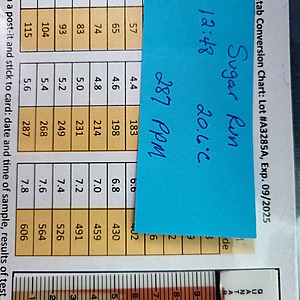 tab Conversion Chart: Lot #A3285A, Exp. 09/2025
Sugar Run
12:48 20.6°C
287 PPM
4.4 183 6.8
57 4.6 198 6.8 430
65 4.8 214 7.0 459
74 5.0 231 7.2 491
83 5.2 249 7.4 526
93 5.4 268 7.6 564
104 5.6 287 7.8 606
115
a post-it and stick to card: date and time of sample, results of test